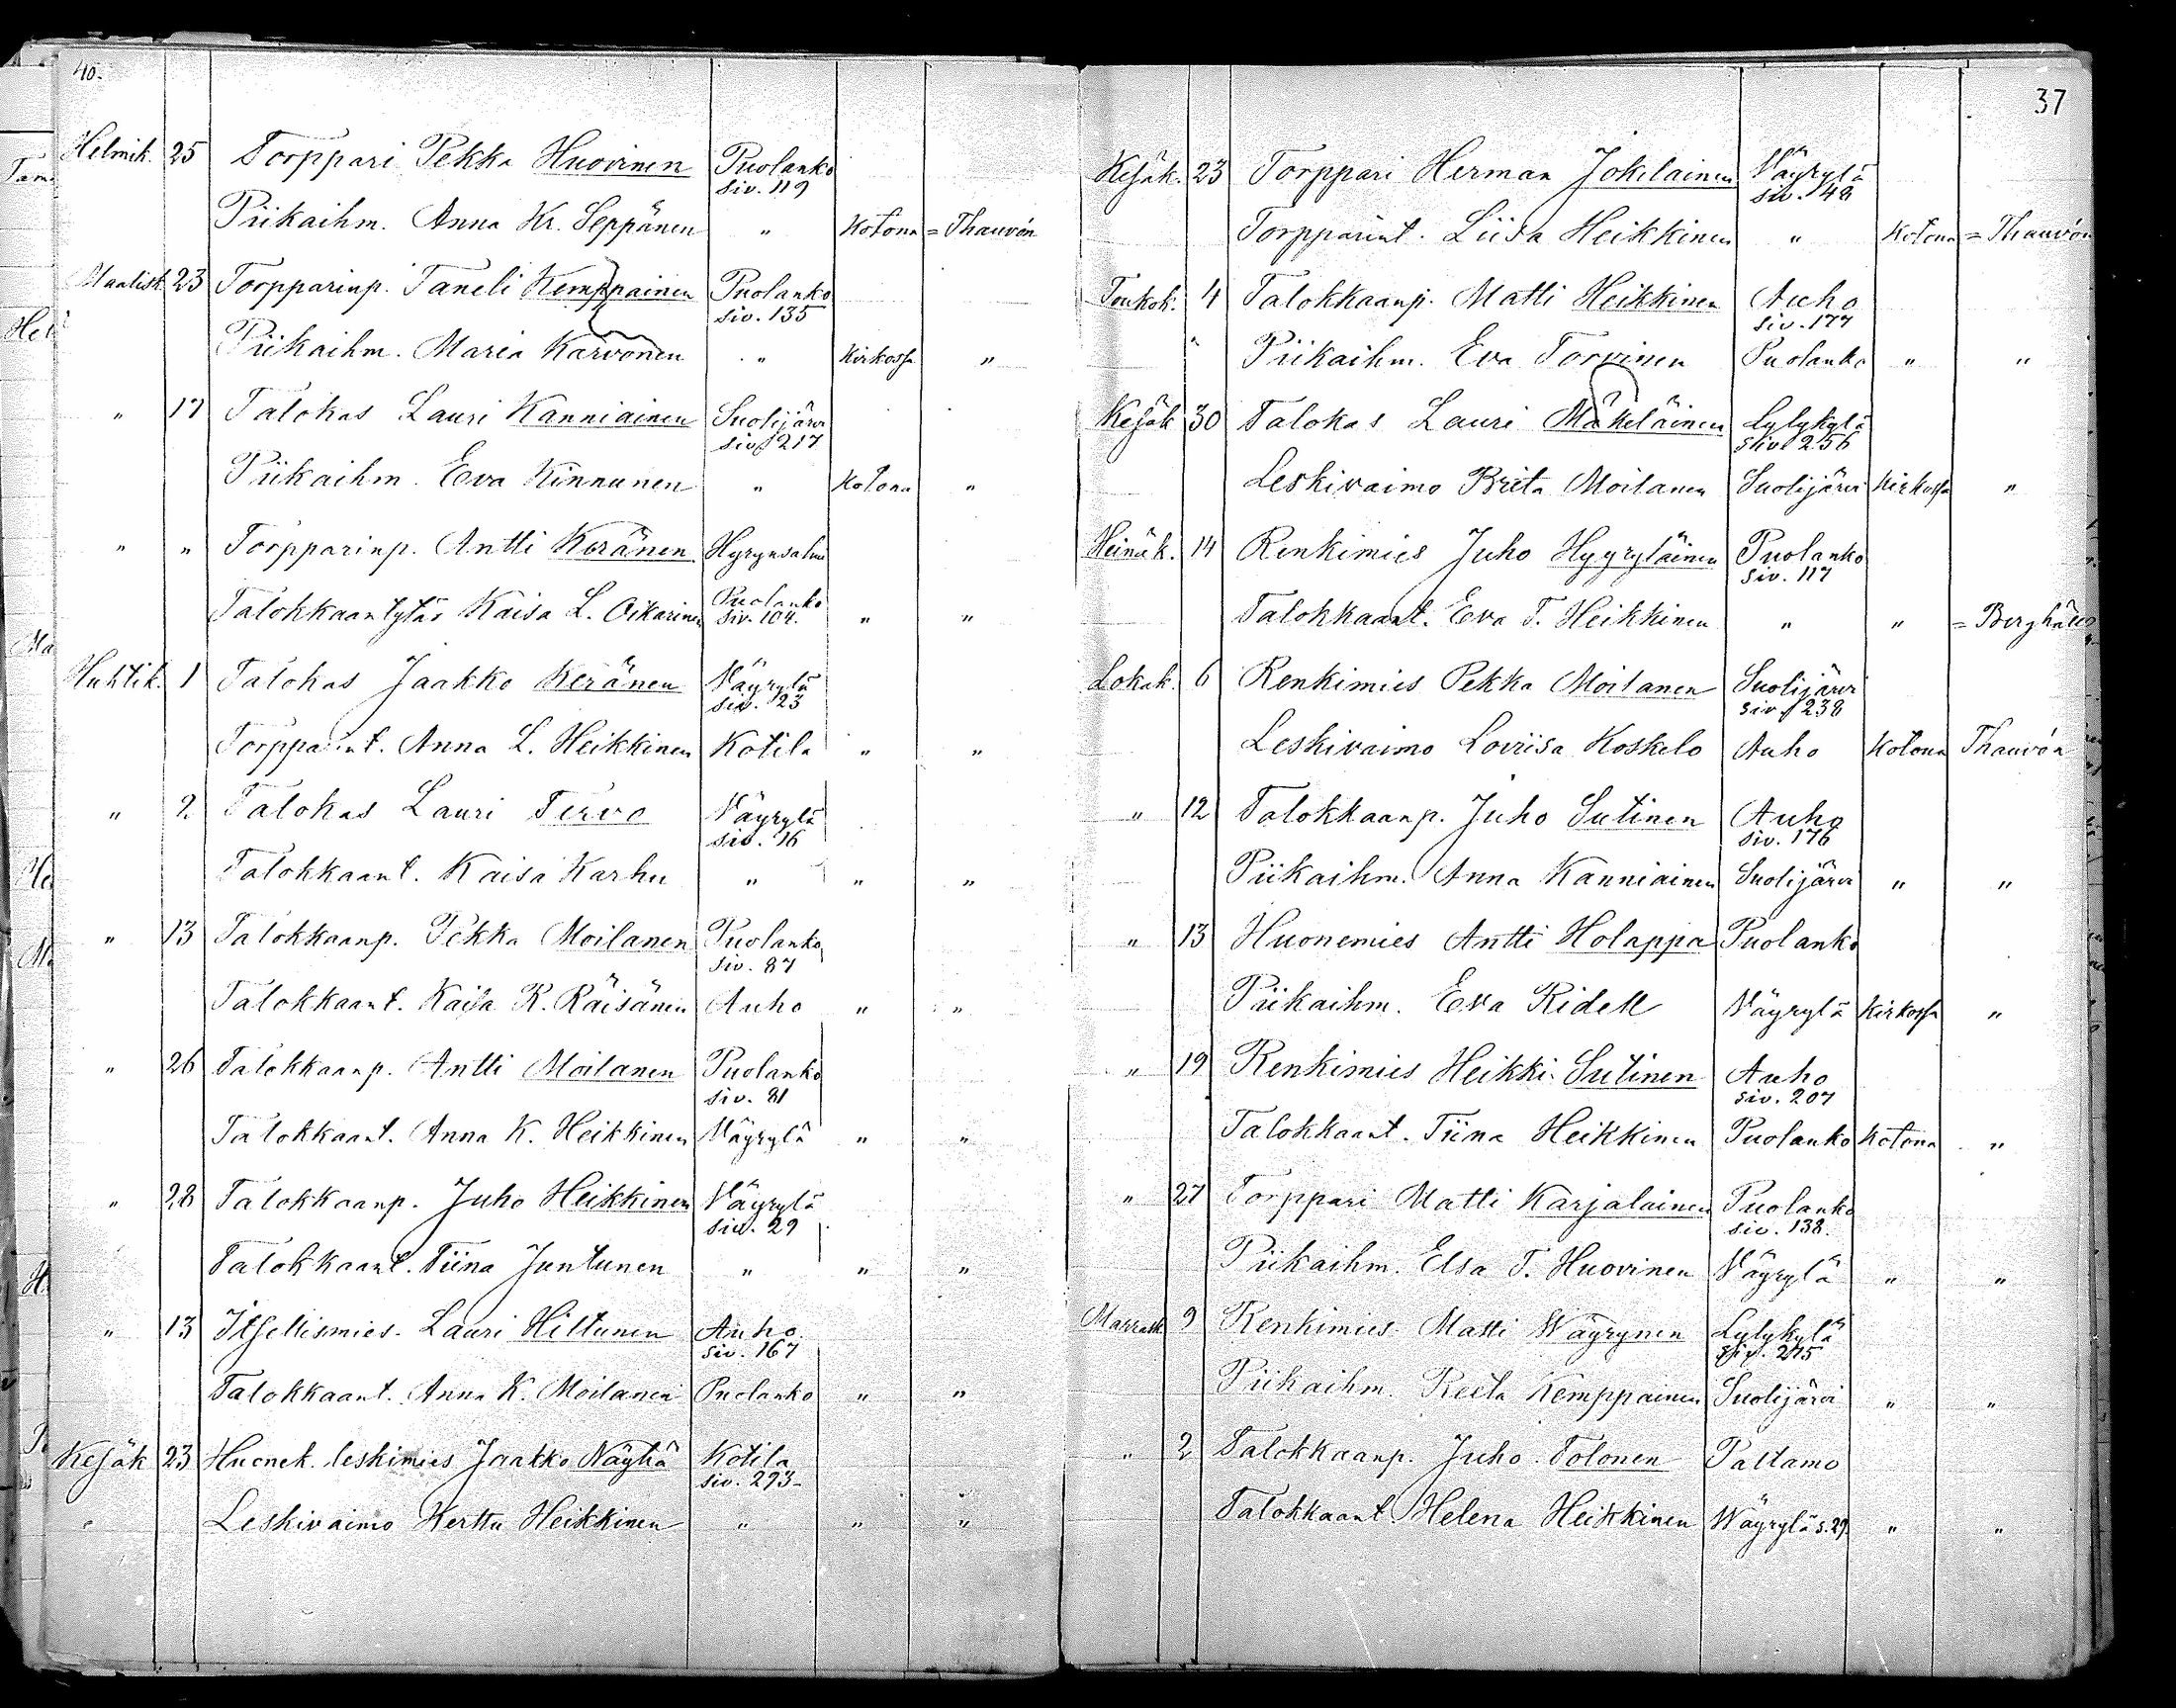 40.
Helmik. 25 Torppari Pekka Huovinen Puolanko
siv. 119
Piikaihm. Anna Kr. Seppänen " Kotona = Thauvón
Maalisk. 23 Torpparinp. Taneli Kemppainen Puolanko
siv. 135
Piikaihm. Maria Karvonen " Kirkossa "
" 17 Talokas Lauri Kanniainen Suolijärvi
siv. 217
Piikaihm. Eva Kinnunen " Kotona "
" " Torpparinp. Antti Keränen Hyrynsalmi
Talokkaantytär Kaisa L. Oikarinen Puolanko
siv. 104. " "
Huhtik. 1 Talokas Jaakko Keränen Väyrylä
siv. 23
Torpparint. Anna L. Heikkinen Kotila " "
" 2 Talokas Lauri Tervo Väyrylä
siv. 16
Talokkaant. Kaisa Karhu " " "
" 13 Talokkaanp. Pekka Moilanen Puolanko
siv. 87
Talokkaant. Kaisa R. Räisänen Auho " "
" 26 Talokkaanp. Antti Moilanen Puolanko
siv. 81
Talokkaant. Anna K. Heikkinen Väyrylä " "
" 28 Talokkaanp. Juho Heikkinen Väyrylä
siv. 29
Talokkaant. Tiina Juntunen " " "
" 13 Itsellismies. Lauri Hiltunen Auho.
siv. 167
Talokkaant. Anna K. Moilanen Puolanko " "
Kesäk 23 Huonek. leskimies Jaakko Näyhä Kotila
siv. 293
Leskivaimo Kerttu Heikkinen " " "
37
Kesäk. 23 Torppari Herman Jokelainen Väyrylä
siv. 48
Torpparint. Liisa Heikkinen " Kotona = Thauvón
Toukok. 4 Talokkaanp. Matti Heikkinen Auho
siv. 177
" Piikaihm. Eva Torvinen Puolanko " "
Kesäk 30 Talokas Lauri Mäkeläinen Lylykylä
siv. 256
Leskivaimo Brita Moilanen Suolijärvi Kirkossa "
Heinäk. 14 Renkimies Juho Hyyryläinen Puolanko
siv. 117
Talokkaant. Eva T. Heikkinen " " = Berghäll
Lokak. 6 Renkimies Pekka Moilanen Suolijärvi
siv. 238
Leskivaimo Loviisa Koskelo Auho Kotona Thauvón
" 12 Talokkaanp. Juho Sutinen Auho
siv. 176
Piikaihm. Anna Kanniainen Suolijärvi " "
" 13 Huonemies Antti Holappa Puolanko
Piikaihm. Eva Ridell Väyrylä Kirkossa "
" 19 Renkimies Heikki Sutinen Auho
siv. 207
Talokkaant. Tiina Heikkinen Puolanko Kotona "
" 27 Torppari Matti Karjalainen Puolanko
siv. 138.
Piikaihm. Elsa T. Huovinen Väyrylä " "
Marrask 9 Renkimies Matti Wäyrynen Lylykylä
siv. 275
Piikaihm. Reeta Kemppainen Suolijärvi " "
" 2 Talokkaanp. Juho Tolonen Paltamo
Talokkaant Helena Heikkinen Wäyrylä s. 29. " "